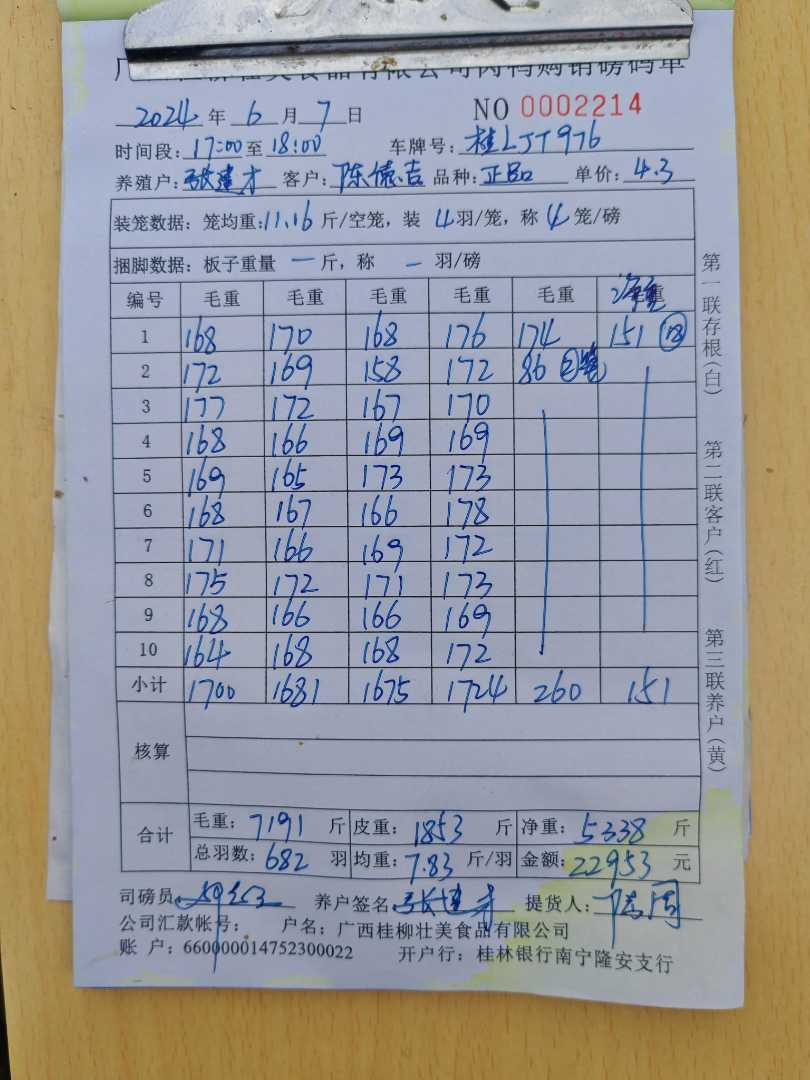 壮美食品有限公司肉鸭购销磅码单
2024年6月7日 NO 0002214
时间段:17:00至18:00 车牌号:桂LJT976
养殖户:张建才 客户:陈德吉 品种:正品 单价:4.3
装笼数据:笼均重:11.16斤/空笼,装4羽/笼,称4笼/磅
捆脚数据:板子重量一斤,称一羽/磅
编号 毛重 毛重 毛重 毛重 毛重 净重
1 168 170 168 176 174 151 (18)
2 172 169 158 172 86 ②笼
3 177 172 167 170
4 168 166 169 169
5 169 165 173 173
6 168 167 166 178
7 171 166 169 172
8 175 172 171 173
9 168 166 166 169
10 164 168 168 172
小计 1700 1681 1675 1724 260 151
核算
合计 毛重:7191斤 皮重:1853斤 净重:5338斤
总羽数:682羽 均重:7.83斤/羽 金额:22953元
司磅员: 养户签名:张建才 提货人:
公司汇款帐号: 户名:广西桂柳壮美食品有限公司
账 户:660000014752300022 开户行:桂林银行南宁隆安支行
第一联存根(白)
第二联客户(红)
第三联养户(黄)